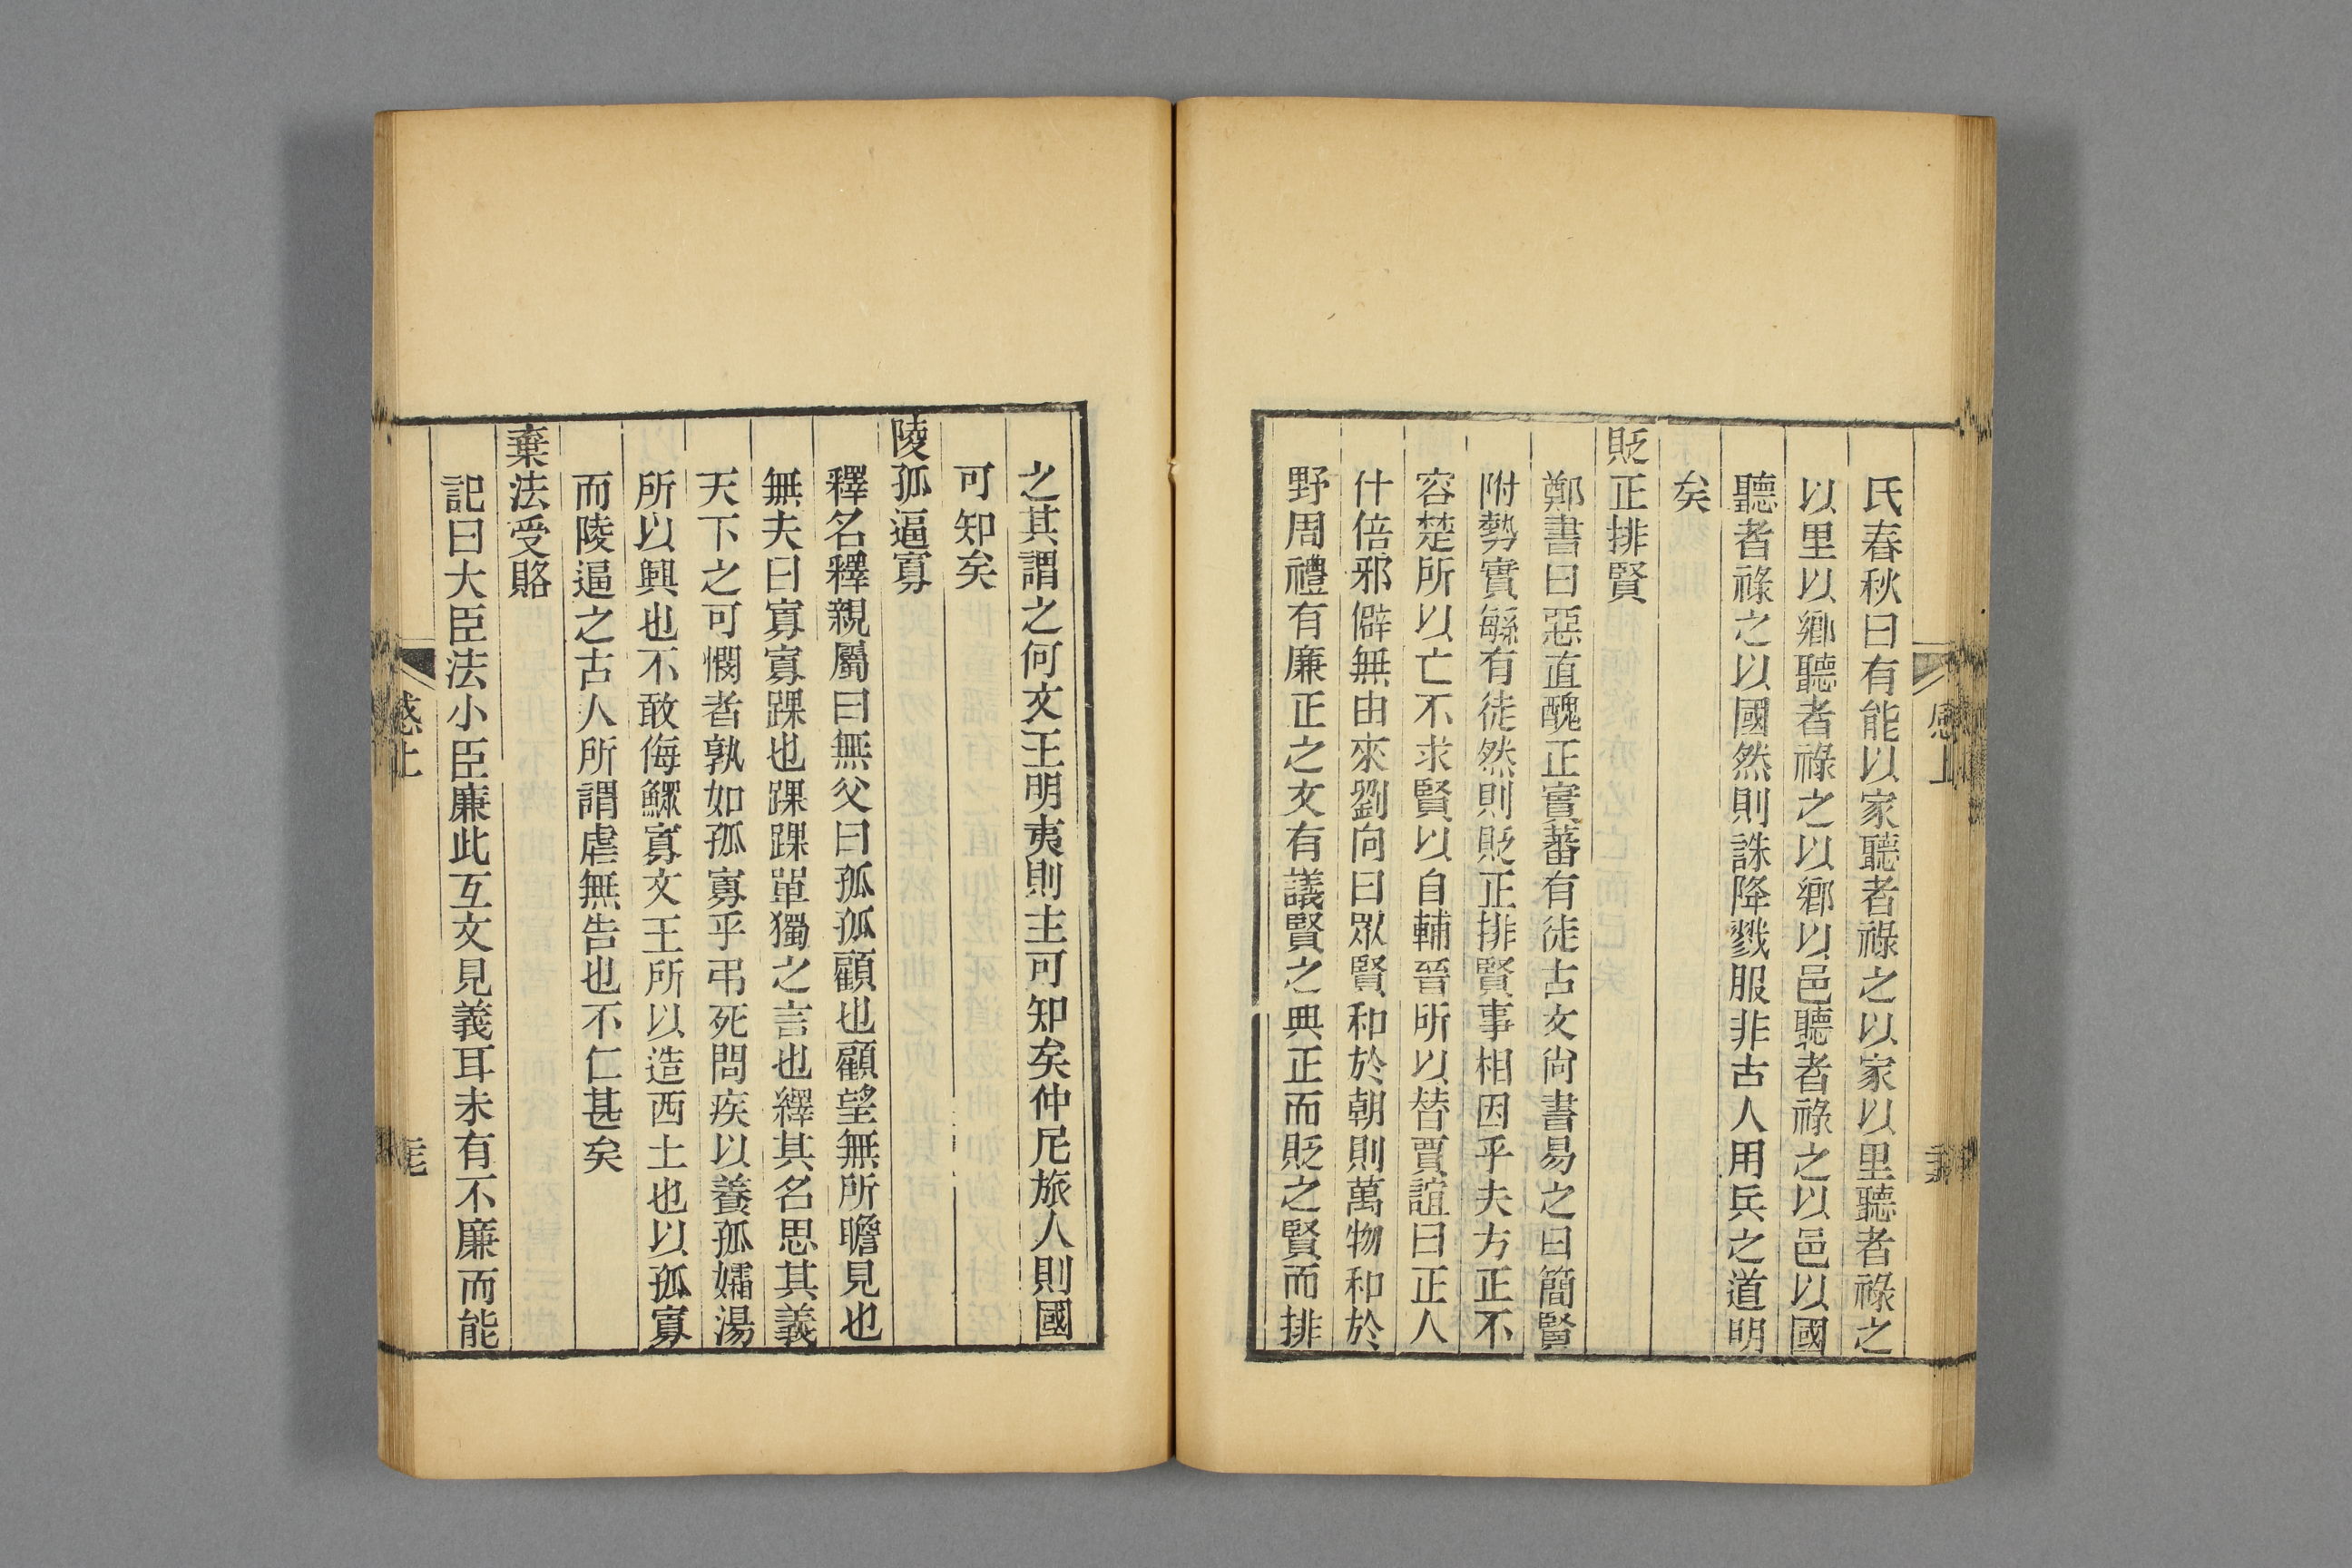 氏春秋曰有能以家聽者祿之以家以里聽者祿之
以里以鄉聽者祿之以鄉以邑聽者祿之以邑以國
聽者祿之以國然則誅降戮服非古人用兵之道明
矣
貶正排賢
鄭書曰惡直醜正實蕃有徒古文尙書易之曰簡賢
附勢實繇有徒然則貶正排賢事相因乎夫方正不
容楚所以亡不求賢以自輔晉所以替賈誼曰正人
什倍邪僻無由來劉向曰眾賢和於朝則萬物和於
野周禮有廉正之文有議賢之典正而貶之賢而排
之其謂之何文王明夷則主可知矣仲尼旅人則國
可知矣
陵孤逼寡
釋名釋親屬曰無父曰孤孤顧也顧望無所瞻見也
無夫曰寡寡踝也踝踝單獨之言也繹其名思其義
天下之可憫者孰如孤寡乎弔死問疾以養孤孀湯
所以興也不敢侮鰥寡文王所以造西土也以孤寡
而陵逼之古人所謂虐無告也不仁甚矣
棄法受賂
記曰大臣法小臣廉此互文見義耳未有不廉而能
感上